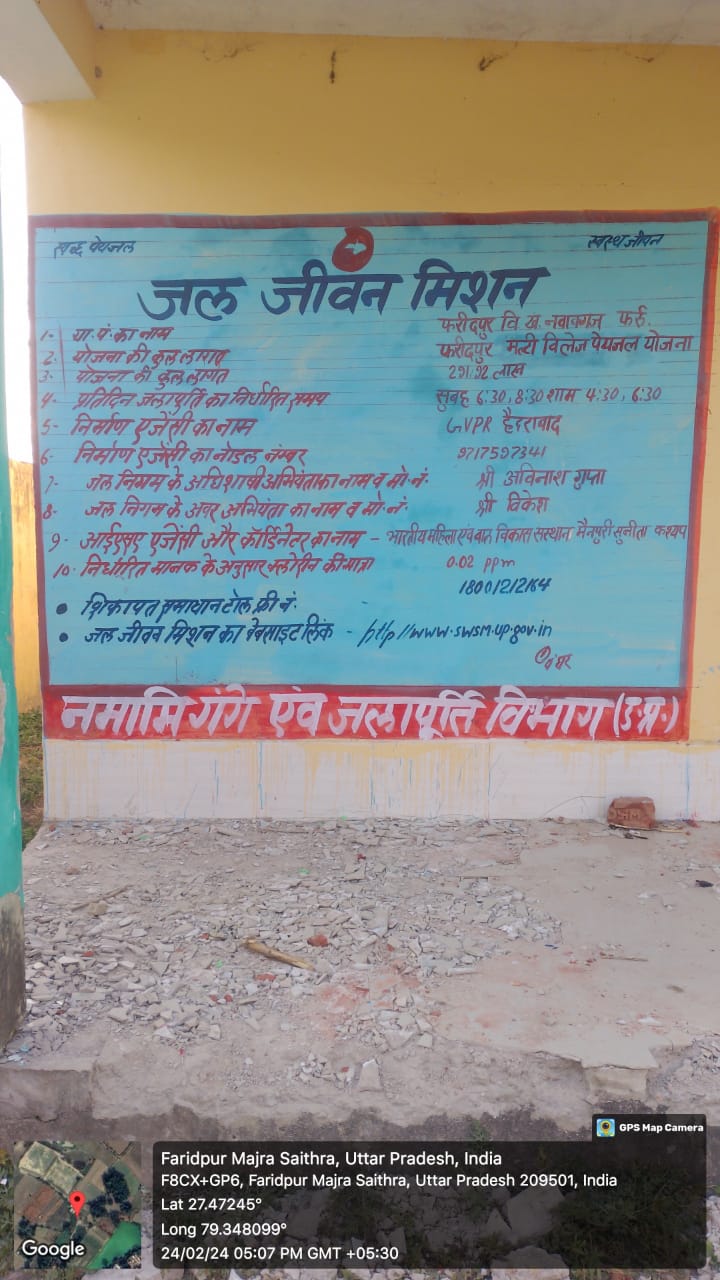 स्वच्छ पेयजल
स्वस्थ जीवन
जल जीवन मिशन
1- ग्रा.पं. का नाम फरीदपुर वि.ख. नवाबगंज फर्रु.
2- योजना की कुल लागत फरीदपुर मल्टी विलेज पेयजल योजना
3- योजना की कुल लागत 291.92 लाख
4- प्रतिदिन जलापूर्ति का निर्धारित समय सुबह 6:30, 8:30 शाम 4:30, 6:30
5- निर्माण एजेंसी का नाम GVPR हैदराबाद
6- निर्माण एजेंसी का नोडल नम्बर 9717597341
7- जल निगम के अधिशाषी अभियंता का नाम व मो.नं. श्री अविनाश गुप्ता
8- जल निगम के अवर अभियंता का नाम व मो.नं. श्री विकेश
9- आईएसए एजेंसी और कॉर्डिनेटर का नाम - भारतीय महिला एवं बाल विकास संस्थान मैनपुरी सुनीता कश्यप
10- निर्धारित मानक के अनुसार क्लोरीन की मात्रा 0.02 ppm
• शिकायत समाधान टोल फ्री नं. - 18001212164
• जल जीवन मिशन का वेबसाइट लिंक - http//www.swsm.up.gov.in
नमामि गंगे एंव जलापूर्ति विभाग (उ.प्र.)
GPS Map Camera
Faridpur Majra Saithra, Uttar Pradesh, India
F8CX+GP6, Faridpur Majra Saithra, Uttar Pradesh 209501, India
Lat 27.47245°
Long 79.348099°
24/02/24 05:07 PM GMT +05:30
Google